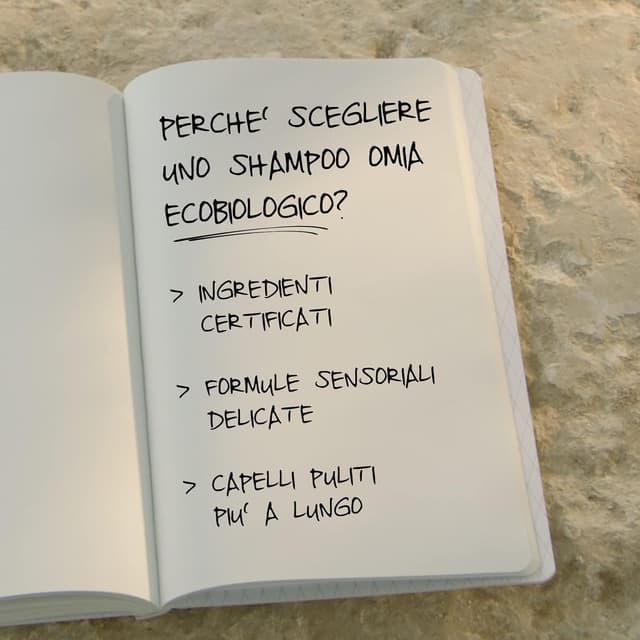 PERCHE' SCEGLIERE
UNO SHAMPOO OMIA
ECOBIOLOGICO?
> INGREDIENTI
CERTIFICATI
> FORMULE SENSORIALI
DELICATE
> CAPELLI PULITI
PIU' A LUNGO